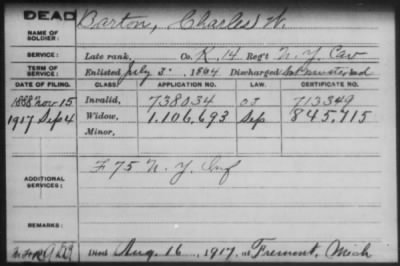 DEAD
NAME OF SOLDIER: Barton, Charles W.
SERVICE: Late rank, Co. K, 14 Reg't N. Y. Cav
TERM OF SERVICE: Enlisted July 3, 1864 Discharged
DATE OF FILING. CLASS. APPLICATION NO. LAW. CERTIFICATE NO.
1888 Nov 15 Invalid, 738034 713349
1917 Sep 4 Widow, 1.106,693 Sep 845,715
Minor,
ADDITIONAL SERVICES: F 75 N. Y. Inf
REMARKS:
Died Aug. 16, 1917, at Fremont, Mich